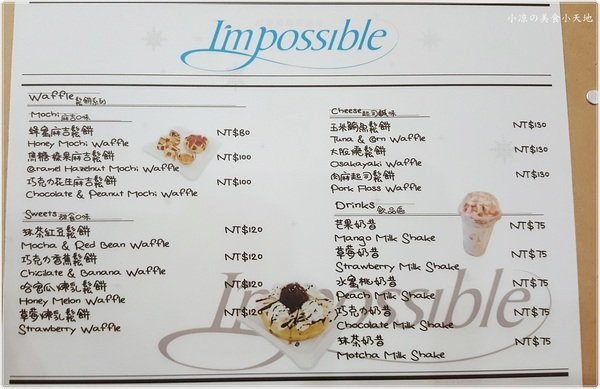 小凉の美食小天地
I'mpossible
Waffle 鬆餅系列
Mochi 麻吉口味
蜂蜜麻吉鬆餅 NT$80
Honey Mochi Waffle
焦糖榛果麻吉鬆餅 NT$100
Caramel Hazelnut Mochi Waffle
巧克力花生麻吉鬆餅 NT$100
Chocolate & Peanut Mochi Waffle
Sweets 甜食口味
抹茶紅豆鬆餅 NT$120
Mocha & Red Bean Waffle
巧克力香蕉鬆餅 NT$120
Chiclate & Banana Waffle
哈蜜瓜煉乳鬆餅 NT$120
Honey Melon Waffle
草莓煉乳鬆餅 NT$120
Strawberry Waffle
Cheese 起司鹹味
玉米鮪魚鬆餅 NT$130
Tuna & Corn Waffle
大阪燒鬆餅 NT$130
Osakayaki Waffle
肉麻起司鬆餅 NT$130
Pork Floss Waffle
Drinks 飲品區
芒果奶昔 NT$75
Mango Milk Shake
草莓奶昔 NT$75
Strawberry Milk Shake
水蜜桃奶昔 NT$75
Peach Milk Shake
巧克力奶昔 NT$75
Chocolate Milk Shake
抹茶奶昔 NT$75
Motcha Milk Shake
Impossible